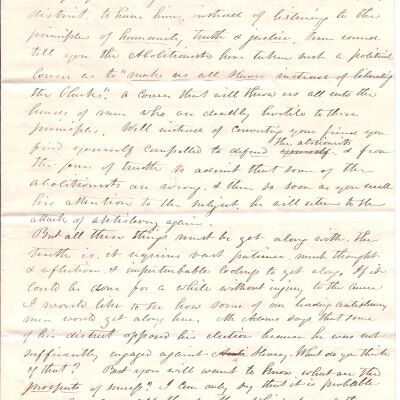 district to have him, instead of listening to the
principles of humanity, truth & justice, turn round
tell you the Abolitionists have taken such a political
course as to "make us all slaves instead of liberating
the blacks". a course that will throw us all into the
hands of men who are deadly hostile to these
principles. Well instead of converting your friend you
find yourself compelled to defend the abolitionists & from
the force of truth to admit that some of the
abolitionists are wrong. & then so soon as you call
his attention to the subject, he will return to the
attack of antislavery again.
But all these things must be got along with. The
truth is, it requires vast patience, much thought
& reflection & imperturbable coolness to get along. If it
could be done for a while without injury to the cause
I would like to see how some of our leading antislavery
men would get along here. Mr Adams says that some
of his district opposed his election because he was not
sufficiently engaged against Slavery. What do you think
of that? But you will want to know what are the
prospects of success? I can only say that it is probable